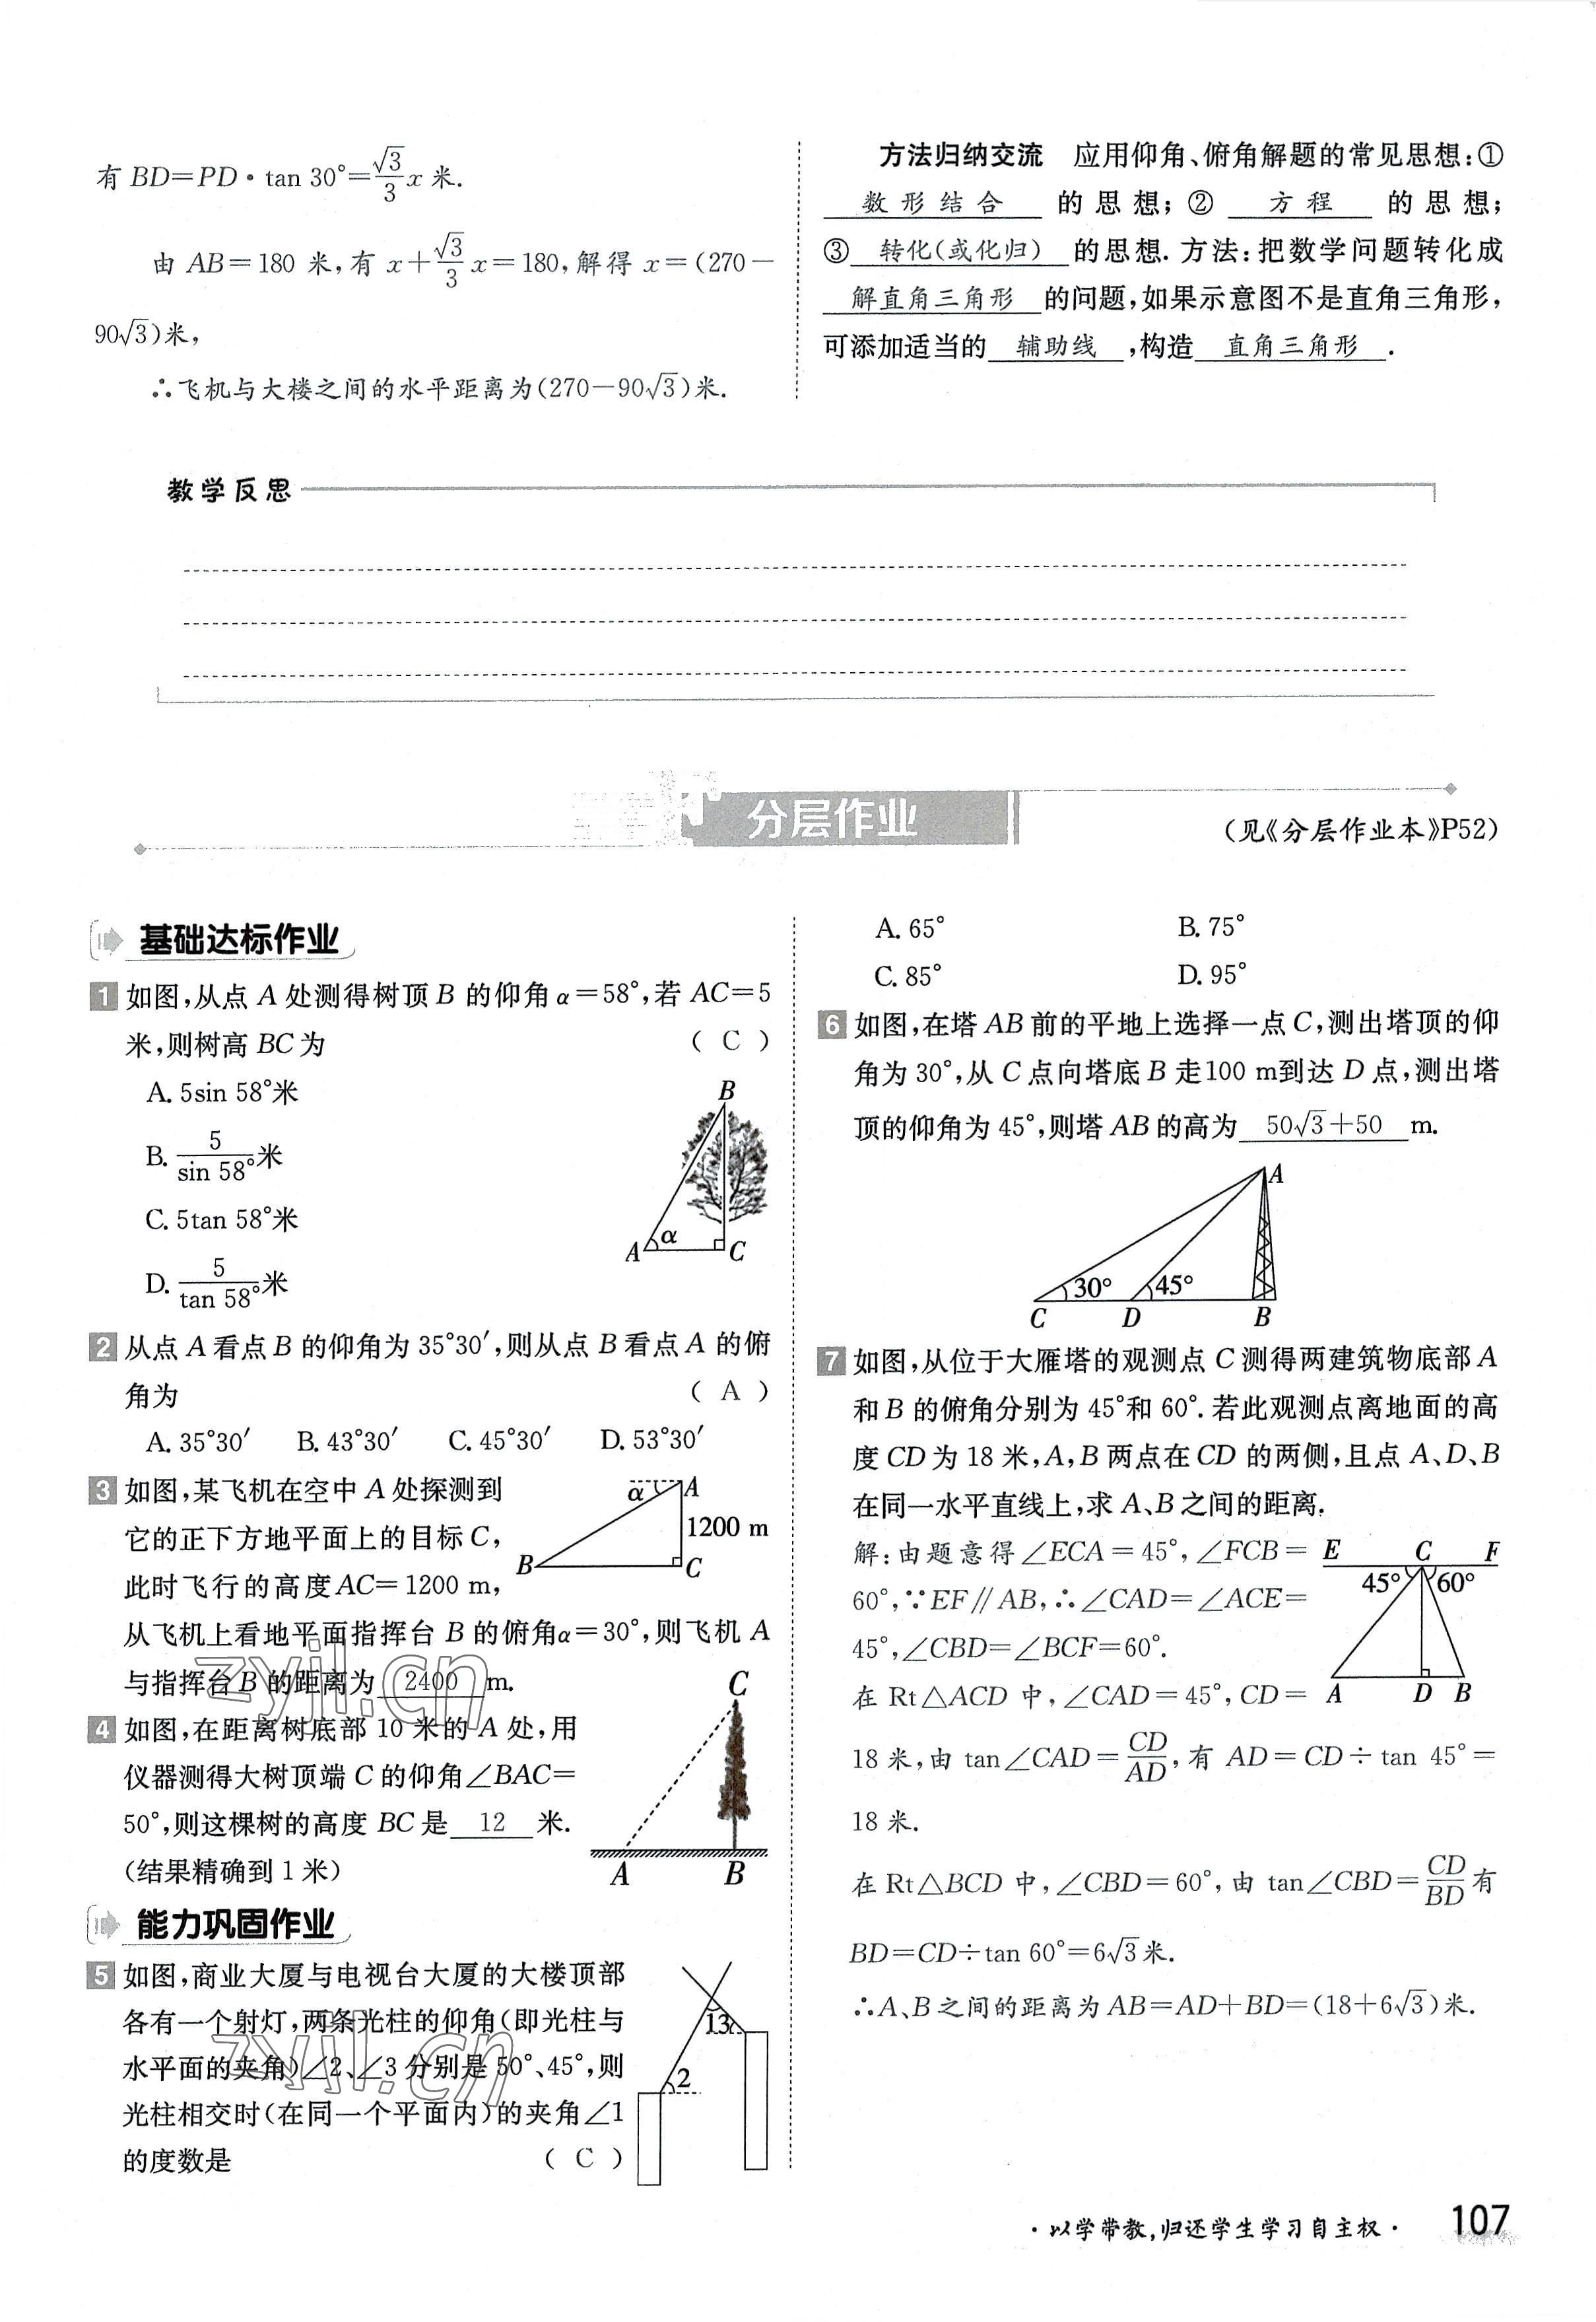 有 BD=PD·tan 30°=√3/3 x 米.
由 AB=180 米,有 x+√3/3 x=180,解得 x=(270-
90√3)米,
∴飞机与大楼之间的水平距离为(270-90√3)米.
方法归纳交流 应用仰角、俯角解题的常见思想:①
数形结合 的思想;② 方程 的思想;
③ 转化(或化归) 的思想.方法:把数学问题转化成
解直角三角形 的问题,如果示意图不是直角三角形,
可添加适当的 辅助线 ,构造 直角三角形 .
教学反思
分层作业
(见《分层作业本》P52)
基础达标作业
1 如图,从点 A 处测得树顶 B 的仰角 α=58°,若 AC=5
米,则树高 BC 为 ( C )
A. 5sin 58°米
B. 5/sin 58°米
C. 5tan 58°米
D. 5/tan 58°米
B
A α C
2 从点 A 看点 B 的仰角为 35°30′,则从点 B 看点 A 的俯
角为 ( A )
A. 35°30′ B. 43°30′ C. 45°30′ D. 53°30′
3 如图,某飞机在空中 A 处探测到
它的正下方地平面上的目标 C,
此时飞行的高度 AC=1200 m,
从飞机上看地平面指挥台 B 的俯角α=30°,则飞机 A
与指挥台 B 的距离为 2400 m.
α A
1200 m
B C
4 如图,在距离树底部 10 米的 A 处,用
仪器测得大树顶端 C 的仰角∠BAC=
50°,则这棵树的高度 BC 是 12 米.
(结果精确到 1 米)
C
A B
能力巩固作业
5 如图,商业大厦与电视台大厦的大楼顶部
各有一个射灯,两条光柱的仰角(即光柱与
水平面的夹角)∠2、∠3 分别是 50°、45°,则
光柱相交时(在同一个平面内)的夹角∠1
的度数是 ( C )
13
2
A. 65° B. 75°
C. 85° D. 95°
6 如图,在塔 AB 前的平地上选择一点 C,测出塔顶的仰
角为 30°,从 C 点向塔底 B 走100 m到达 D 点,测出塔
顶的仰角为 45°,则塔 AB 的高为 50√3+50 m.
A
30° 45°
C D B
7 如图,从位于大雁塔的观测点 C 测得两建筑物底部 A
和 B 的俯角分别为 45°和 60°.若此观测点离地面的高
度 CD 为 18 米,A,B 两点在 CD 的两侧,且点 A、D、B
在同一水平直线上,求 A、B 之间的距离.
解:由题意得∠ECA=45°,∠FCB=
60°,∵EF∥AB,∴∠CAD=∠ACE=
45°,∠CBD=∠BCF=60°.
在 Rt△ACD 中,∠CAD=45°,CD=
18 米,由 tan∠CAD=CD/AD,有 AD=CD÷tan 45°=
18 米.
在 Rt△BCD 中,∠CBD=60°,由 tan∠CBD=CD/BD有
BD=CD÷tan 60°=6√3米.
∴A、B 之间的距离为 AB=AD+BD=(18+6√3)米.
E C F
45° 60°
A D B
zyjl.cn
zyjl.cn
·以学带教,归还学生学习自主权·
107